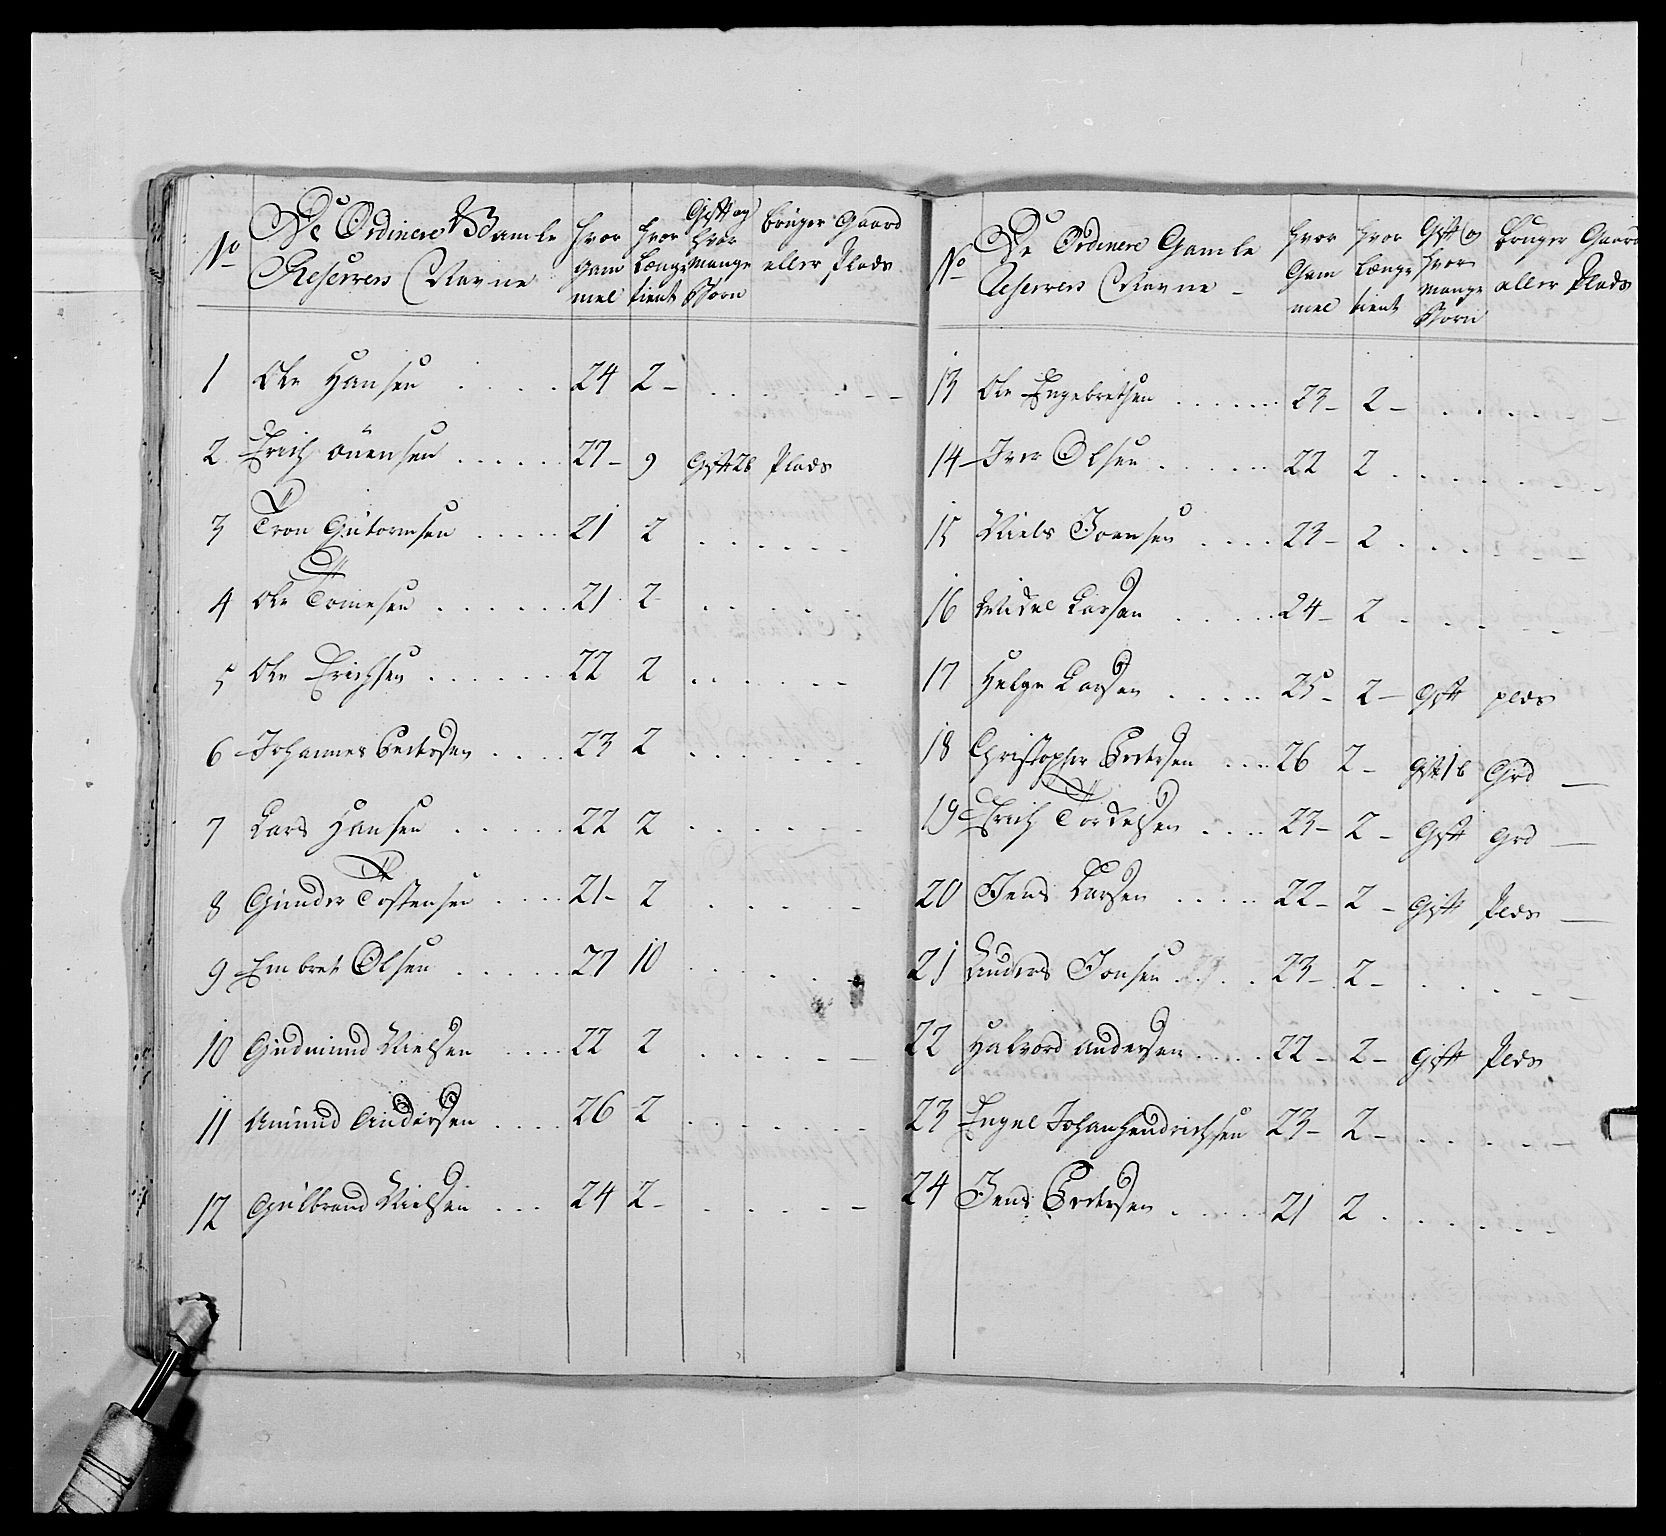 No De Ordinere Gamle Reserven Navne hvor Gammel hvor Længe tient Gift og hvor mange Børn bruger Gaard eller Plads
1 Ole Hansen . . . . 24 2 –
2 Erich Ouensen . . . . . 27 – 9 Gift 2b Plads
3 Tron Gutormsen . . . . . 21 2 . . . . . .
4 Ole Tomesen . . . . . . 21 2 . . . . .
5 Ole Erichsen . . . . . . 22 2 . . . . . .
6 Johannes Pedersen . . . . 23 2 . . . . . .
7 Lars Hansen . . . . . 22 2 . . . . . .
8 Gunder Tostensen . . . . 21 – 2 . . . . .
9 Embret Olsen . . . . . 27 10 . . . . .
10 Gudmund Nielsen . . . . 22 2 . . . . . .
11 Amund Andersen . . . . 26 2 . . . . . . .
12 Gulbrand Nielsen . . . 24 2 – . . . . .
No De Ordinere Gamle Reserven Navne – hvor Gammel hvor Længe tient Gift og hvor mange Børn bruger Gaard eller Plads
13 Ole Engebretsen . . . . . . 23 – 2 – . . . . .
14 Iver Olsen . . . . . . 22 2 . . . . . .
15 Niels Joensen . . . . 23 – 2 . . . . .
16 Lars​en . . . . . 24 – 2 . . . . .
17 Helge Larsen . . . . . 25 – 2 – Gift plds
18 Christopher Pedersen . . . 26 2 – Gift 1b Grd –
19 Erich Tordelsen . . . . 23 – 2 – Gift Grd –
20 Jens Larsen . . . . . 22 – 2 – Gift Plds –
21 Anders Jonsen . . . . 23 – 2 – . . . . .
22 Halvord Andersen . . . . . 22 – 2 – Gift Plds
23 Engel Johanhendrichsen 23 – 2 – . . . . .
24 Jens Pedersen . . . . . 21 2 . . . . . .